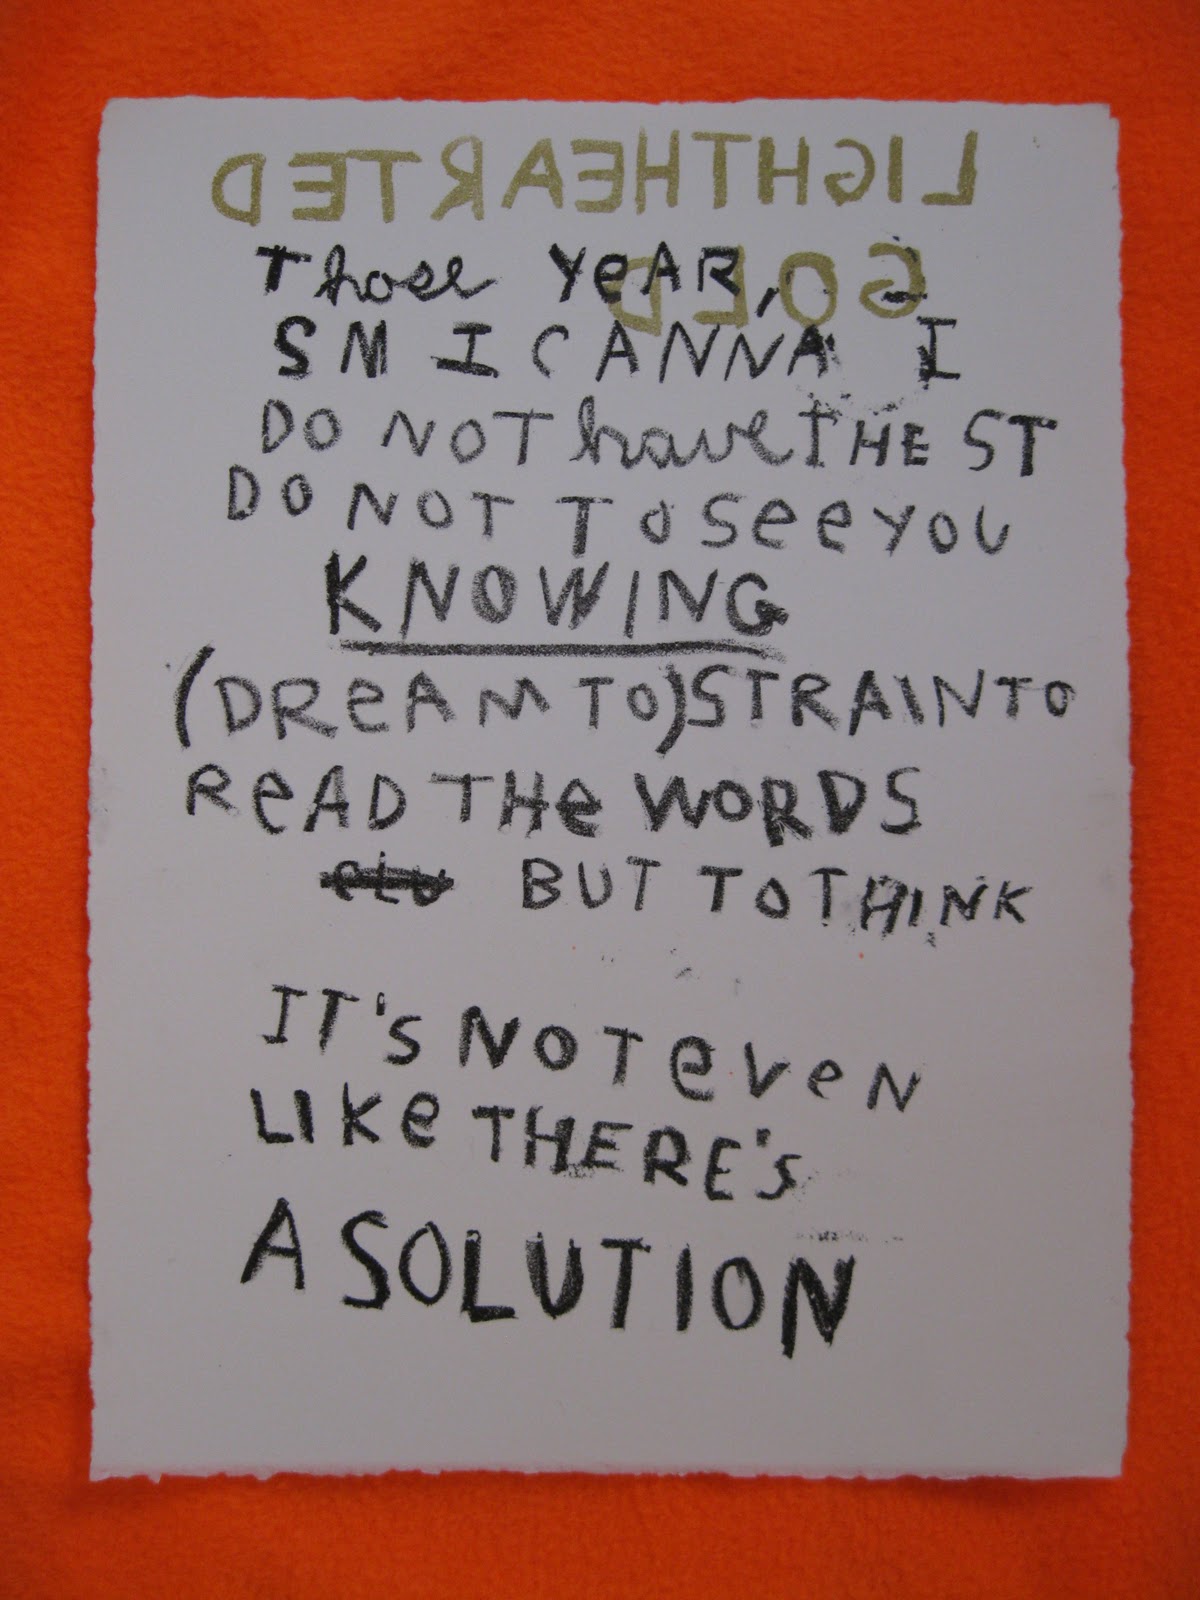 LIGHTHEARTED
GOLD
Those YeAR,
SM I CANNA I
DO NOT have THE ST
DO NOT TO SeeYOU
KNOWING
(DReAM TO) STRAIN TO
ReAD THe WORDS
BUT TO THINK
IT'S NOT eveN
LIKe THERE'S
A SOLUTION